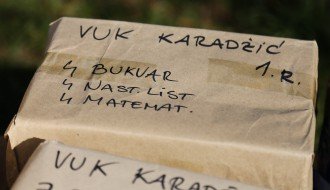 VUK KARADŽIĆ
1. R.
4 BUKVAR
4 NAST. LIST
4 MATEMAT.
VUK KARADŽI